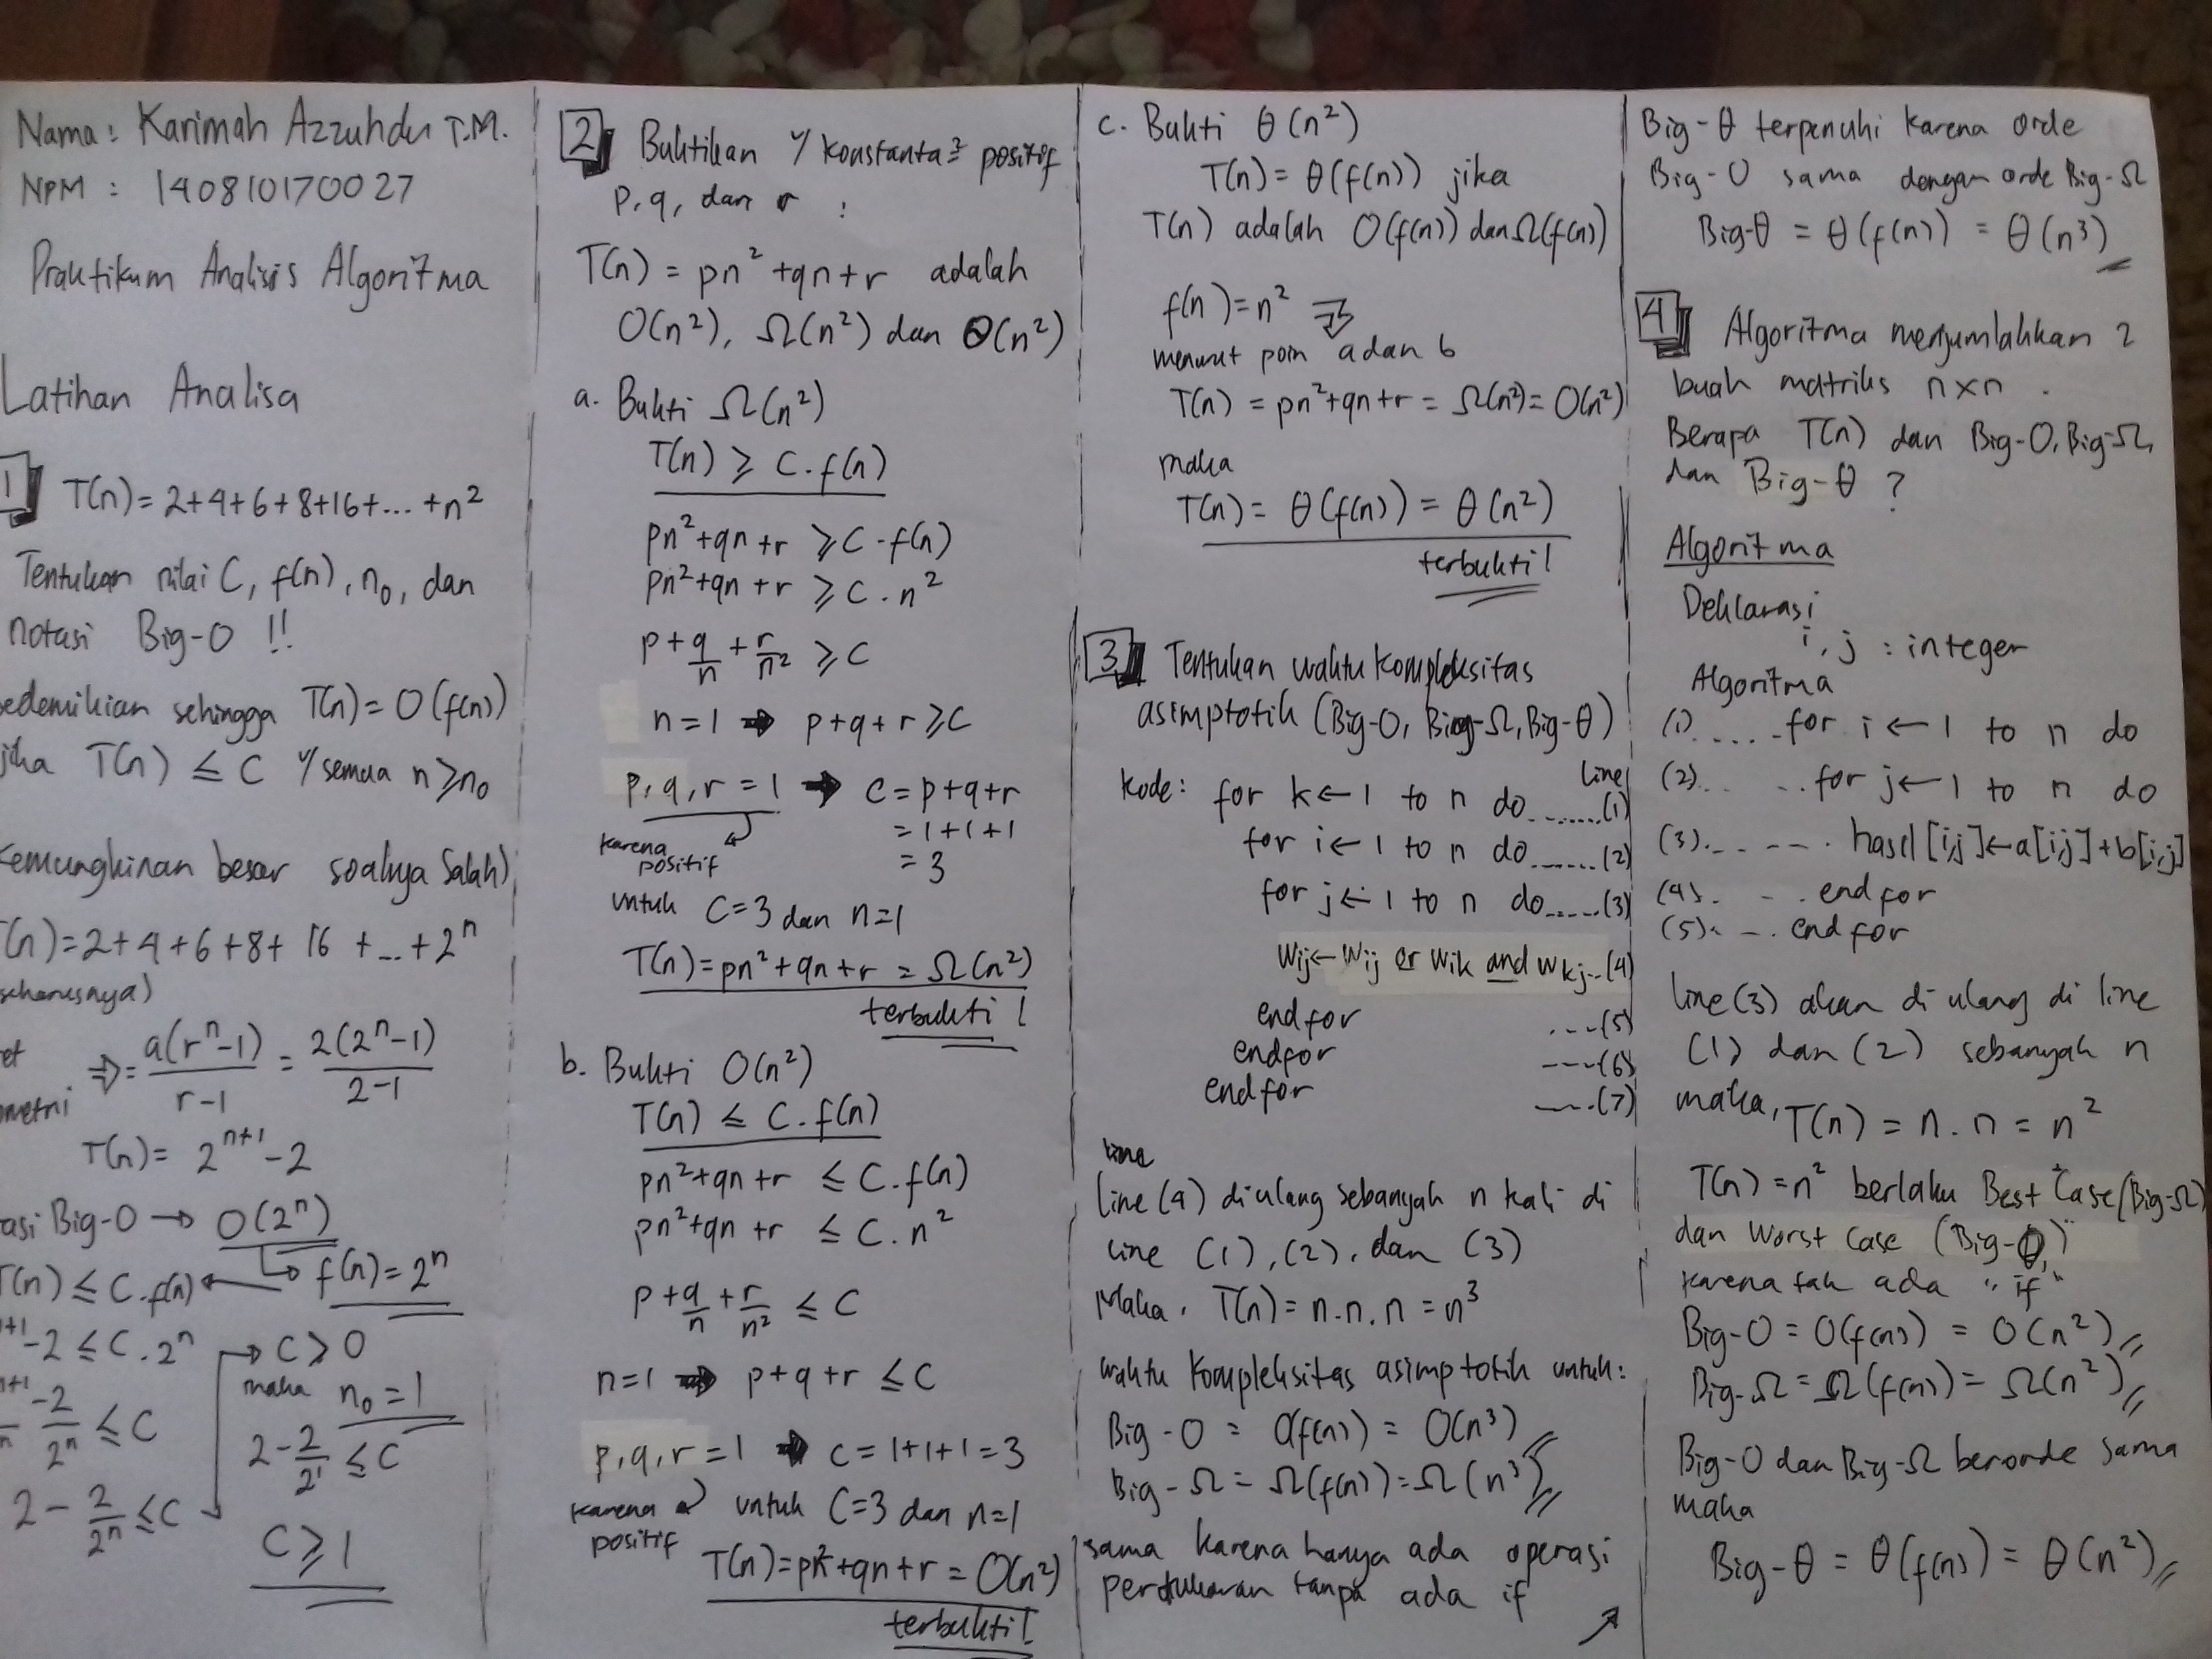 Nama : Karimah Azzuhdu T.M.
NPM : 140810170027
Praktikum Analisis Algoritma
Latihan Analisa
1 T(n) = 2+4+6+8+16+... +n²
Tentukan nilai C, f(n), n₀, dan
notasi Big-O !!
sedemikian sehingga T(n) = O(f(n))
jika T(n) ≤ C y/ semua n ≥ n₀
Kemungkinan besar soalnya salah)
T(n) = 2+4+6+8+ 16 +...+2ⁿ
seharusnya)
et
ometri ⇒ = a(rⁿ-1)/r-1 = 2(2ⁿ-1)/2-1
T(n) = 2ⁿ⁺¹ - 2
asi Big-O → O(2ⁿ)
T(n) ≤ C.f(n) ← → f(n) = 2ⁿ
n+1 -2 ≤ C.2ⁿ → C > 0
maka n₀ = 1
n+1 -2/2ⁿ ≤ C
2 - 2/2¹ ≤ C
2 - 2/2ⁿ ≤ C
C ≥ 1
2 Buktikan y/ konstanta² positif
p, q, dan r :
T(n) = pn² + qn + r adalah
O(n²), Ω(n²) dan Θ(n²)
a. Bukti Ω(n²)
T(n) ≥ C.f(n)
pn²+qn+r ≥ C.f(n)
pn²+qn+r ≥ C.n²
p + q/n + r/n² ≥ C
n=1 → p+q+r ≥ C
p,q,r = 1 → C = p+q+r
= 1+1+1
= 3
karena positif
untuk C=3 dan n=1
T(n) = pn²+qn+r = Ω(n²)
terbukti !
b. Bukti O(n²)
T(n) ≤ C.f(n)
pn²+qn+r ≤ C.f(n)
pn²+qn+r ≤ C.n²
p + q/n + r/n² ≤ C
n=1 → p+q+r ≤ C
p,q,r = 1 → C = 1+1+1 = 3
karena positif
untuk C=3 dan n=1
T(n) = pn²+qn+r = O(n²)
terbukti !
c. Bukti θ(n²)
T(n) = θ(f(n)) jika
T(n) adalah O(f(n)) dan Ω(f(n))
f(n) = n² ⇒
menurut poin a dan b
T(n) = pn²+qn+r = Ω(n²) = O(n²)
maka
T(n) = θ(f(n)) = θ(n²)
terbukti !
3 Tentukan waktu kompleksitas
asimptotik (Big-O, Big-Ω, Big-θ)
line
Kode : for k ← 1 to n do ....... (1)
for i ← 1 to n do ...... (2)
for j ← 1 to n do ..... (3)
Wij ← Wij or Wik and Wkj .. (4)
endfor ... (5)
endfor .... (6)
endfor .... (7)
line (4) diulang sebanyak n kali di
line (1), (2), dan (3)
Maka, T(n) = n.n.n = n³
waktu kompleksitas asimptotik untuk :
Big-O = O(f(n)) = O(n³)
Big-Ω = Ω(f(n)) = Ω(n³)
sama karena hanya ada operasi
pertukaran tanpa ada if
Big-θ terpenuhi karena orde
Big-O sama dengan orde Big-Ω
Big-θ = θ(f(n)) = θ(n³)
4 Algoritma menjumlahkan 2
buah matriks n×n .
Berapa T(n) dan Big-O, Big-Ω,
dan Big-θ ?
Algoritma
Deklarasi
i, j : integer
Algoritma
(1) ..... for i ← 1 to n do
(2) .... for j ← 1 to n do
(3) ...... hasil [i,j] ← a[i,j] + b[i,j]
(4) ... end for
(5) ... end for
line (3) akan di ulang di line
(1) dan (2) sebanyak n
maka, T(n) = n.n = n²
T(n) = n² berlaku Best Case (Big-Ω)
dan Worst Case (Big-O)
karena tak ada "if"
Big-O = O(f(n)) = O(n²)
Big-Ω = Ω(f(n)) = Ω(n²)
Big-O dan Big-Ω berorde sama
maka
Big-θ = θ(f(n)) = θ(n²)